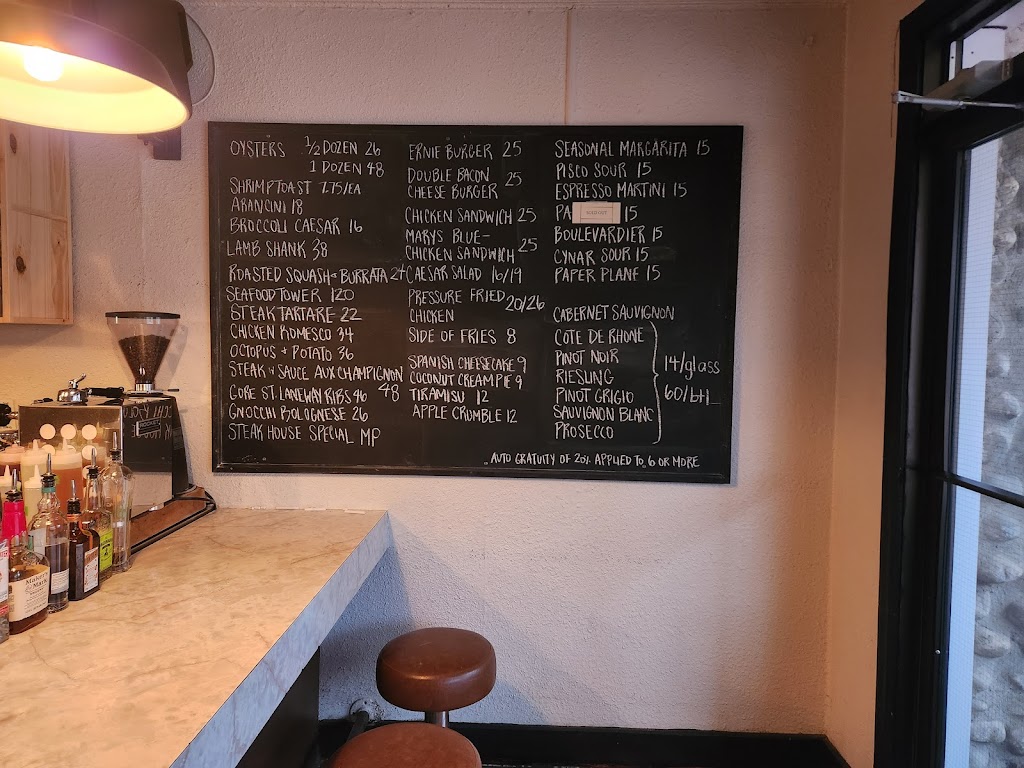 OYSTERS 1/2 DOZEN 26
1 DOZEN 48
SHRIMP TOAST 7.75/EA
ARANCINI 18
BROCCOLI CAESAR 16
LAMB SHANK 38
ROASTED SQUASH + BURRATA 24
SEAFOOD TOWER 120
STEAK TARTARE 22
CHICKEN ROMESCO 34
OCTOPUS + POTATO 36
STEAK W SAUCE AUX CHAMPIGNON
48
GORE ST. LANEWAY RIBS 46
GNOCCHI BOLOGNESE 26
STEAK HOUSE SPECIAL MP
ERNIE BURGER 25
DOUBLE BACON
CHEESE BURGER 25
CHICKEN SANDWICH 25
MARYS BLUE-
CHICKEN SANDWICH 25
CAESAR SALAD 16/19
PRESSURE FRIED 20/26
CHICKEN
SIDE OF FRIES 8
SPANISH CHEESECAKE 9
COCONUT CREAM PIE 9
TIRAMISU 12
APPLE CRUMBLE 12
SEASONAL MARGARITA 15
PISCO SOUR 15
ESPRESSO MARTINI 15
PA 15
BOULEVARDIER 15
CYNAR SOUR 15
PAPER PLANE 15
CABERNET SAUVIGNON
COTE DE RHONE
PINOT NOIR
RIESLING
PINOT GRIGIO
SAUVIGNON BLANC
PROSECCO
14/glass
60/btl
AUTO GRATUITY OF 20% APPLIED TO 6 OR MORE
Maker's
Mark